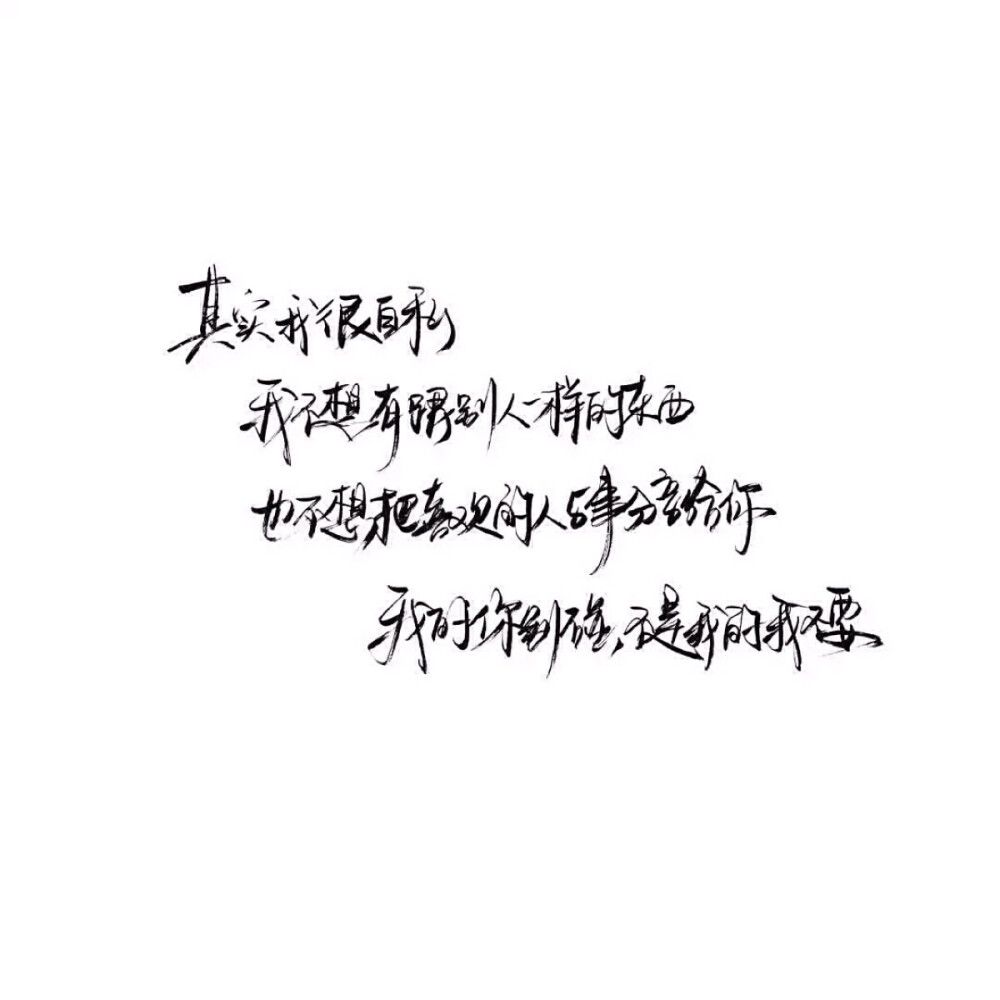 其实我很自私
我不想有跟别人一样的东西
也不想把喜欢的人与事分享给你
我的你别碰,不是我的我不要